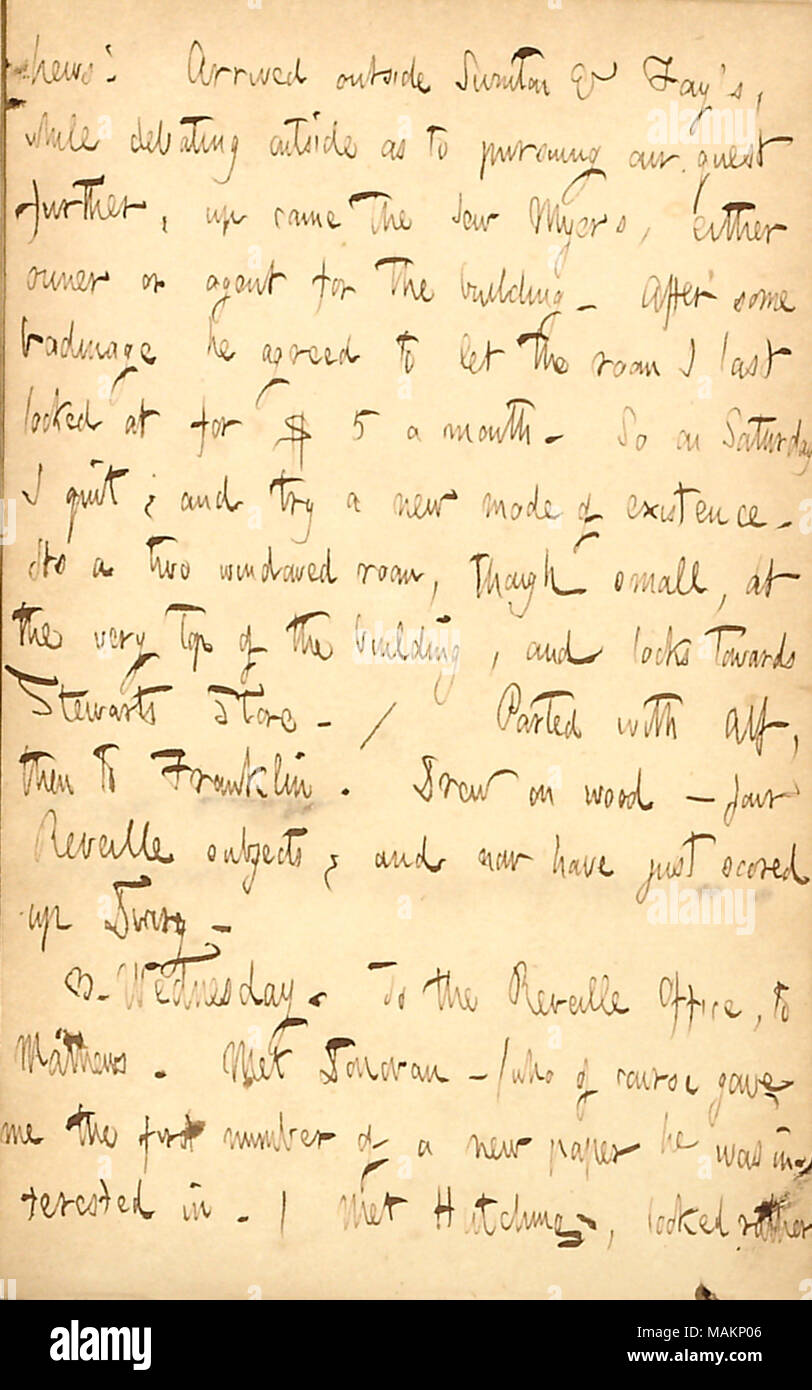 hews'. Arrived outside Swinton & Fay's,
while debating outside as to pursuing our quest
further, up came the Jew Myers, either
owner or agent for the building_ After some
badinage he agreed to let the room I last
looked at for $ 5 a month_ So on Saturday
I quit; and try a new mode of existence_
Its a two windowed room, though small, at
the very top of the building, and looks towards
Stewarts Store_ / Parted with Alf,
then to Franklin. Drew on wood — four
Reveille subjects; and now have just scored
up Diary_
3. Wednesday. To the Reveille Office, to
Mathews. Met Donovan — /who of course gave
me the first number of a new paper he was in-
terested in. / Met Hutchings, looked rather
alamy
Image ID: MAKP06
www.alamy.com